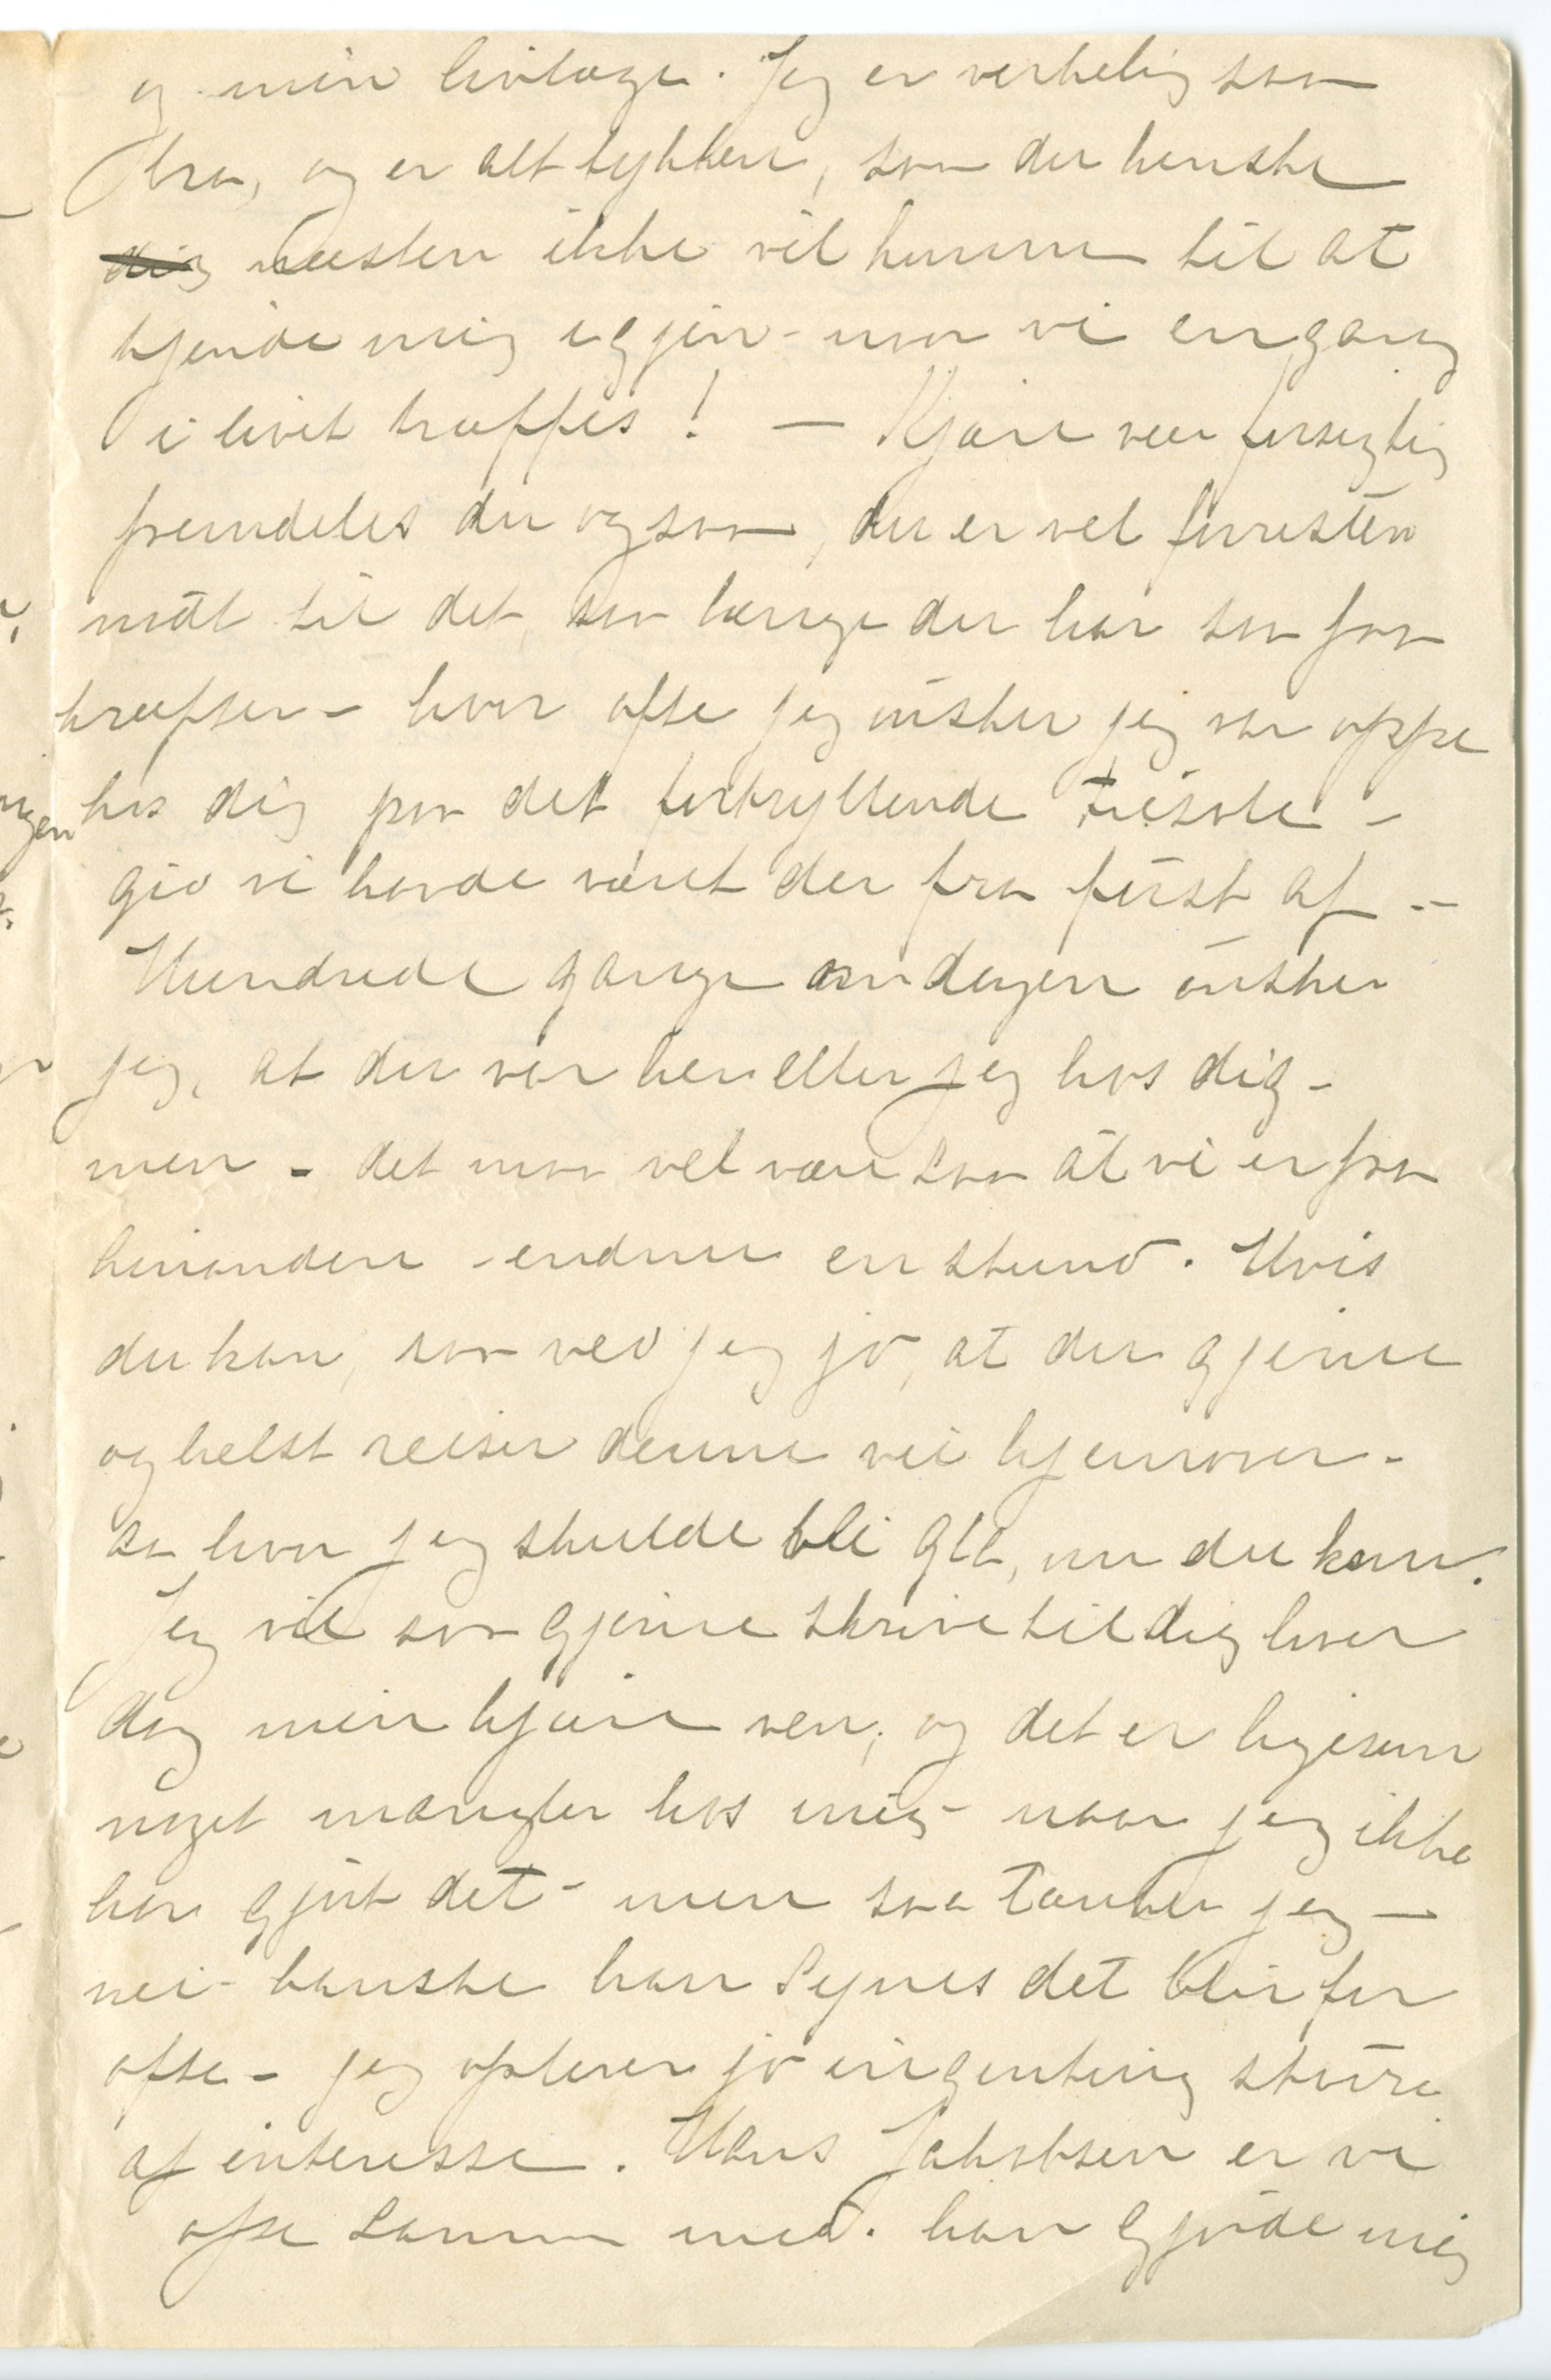 og min livlæge. Jeg er verkelig saa
bra, og er alt tykkere, saa du kenske
dig næsten ikke vil kunne til at
kjende mig igjen - naar vi engang
i livet træffes! — Kjære vær forsegtig
fremdeles du ogsaa, du er vel forresten
nödt til det saa længe du har saa faa
kræfter - hvor ofte jeg önsker jeg var oppe
hos dig paa det fortryllende Fiesole -
gid vi havde været der fra först af -
Hundrede gange om dagen önsker
jeg, at du var her eller jeg hos dig -
men - det maa vel være saa at vi er fra
hinanden - endnu en stund. Hvis
du kan, saa ved jeg jo, at du gjerne
og helst reiser denne vei hjemover -
Aa hvor jeg skulde bli gla, um du kom.
Jeg vil saa gjerne skrive til dig hver
dag min kjære ven, og det er ligesom
noget mangler hos mig - naar jeg ikke
har gjört det - men saa tænker jeg —
nei - kanske han synes det blir for
ofte - jeg oplever jo ingenting större
af interesse. Hans Jakobsen er vi
ofte sammen med. han gjorde mig